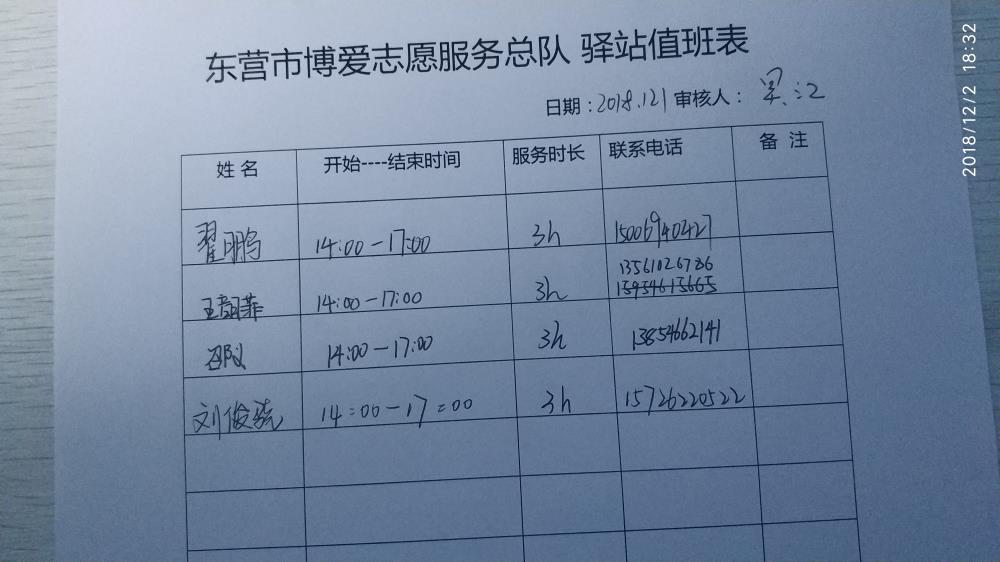 2018/12/2 18:32
东营市博爱志愿服务总队 驿站值班表
日期:2018.121 审核人:
姓名 开始----结束时间 服务时长 联系电话 备 注
翟鹏 14:00-17:00 3h 15006940427
王韶菲 14:00-17:00 3h 13561026786
15954615665
14:00-17:00 3h 13854662141
刘俊 14:00-17:00 3h 15726220522